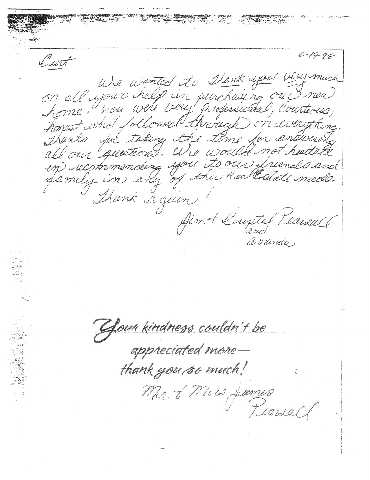 Curt
We wanted to thank you very much
on all your help in purchasing our new
home! You were very professional, courteous,
honest and followed through on everything.
Thanks for taking the time for answering
all our questions. We would not hesitate
in recommending you to our friends and
family in any of their Real Estate needs.
Thank Again!
Jim & Crystal Pearsall
and
Your kindness couldn't be
appreciated more—
thank you so much!
Mr. & Mrs. James
Pearsall